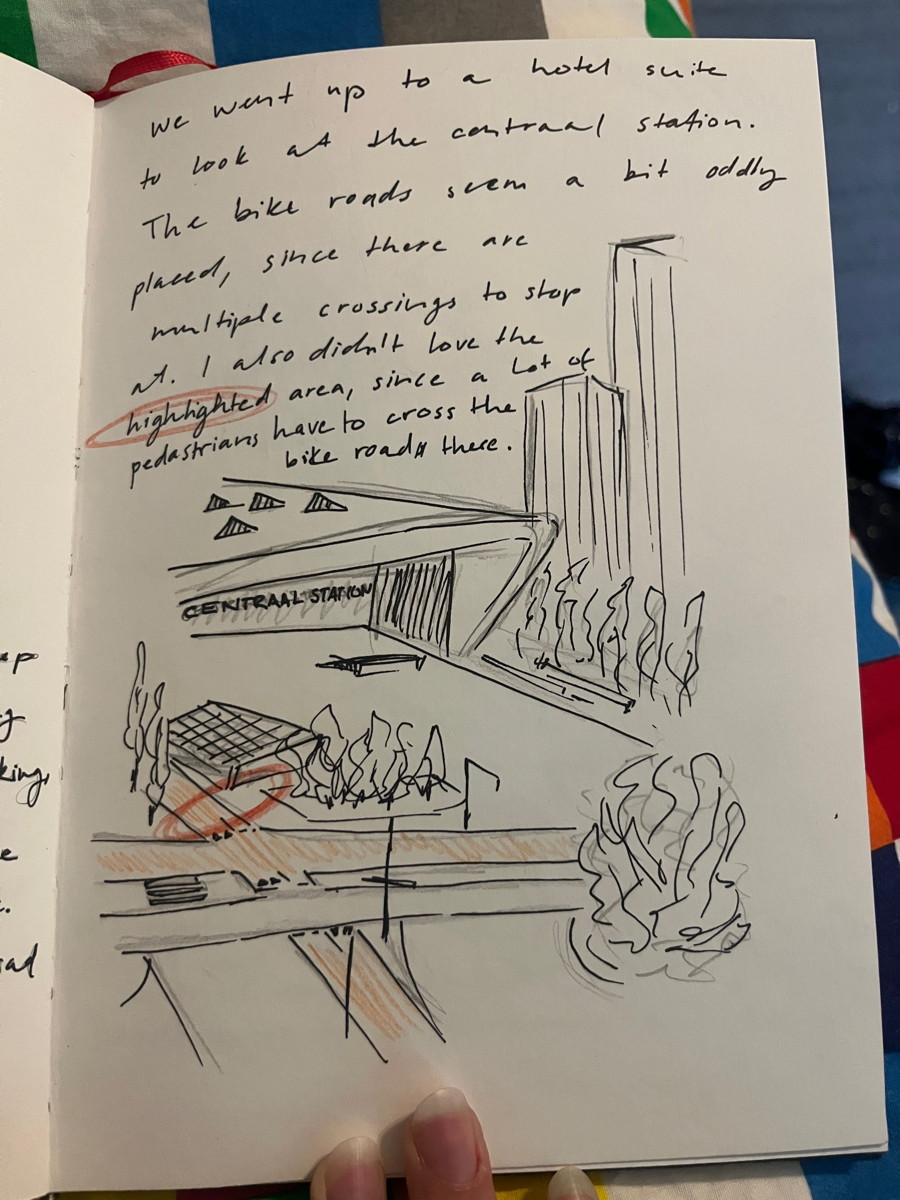 we went up to a hotel suite
to look at the centraal station.
The bike roads seem a bit oddly
placed, since there are
multiple crossings to stop
at. I also didn't love the
highlighted area, since a lot of
pedastrians have to cross the
bike roads there.
CENTRAAL STATION